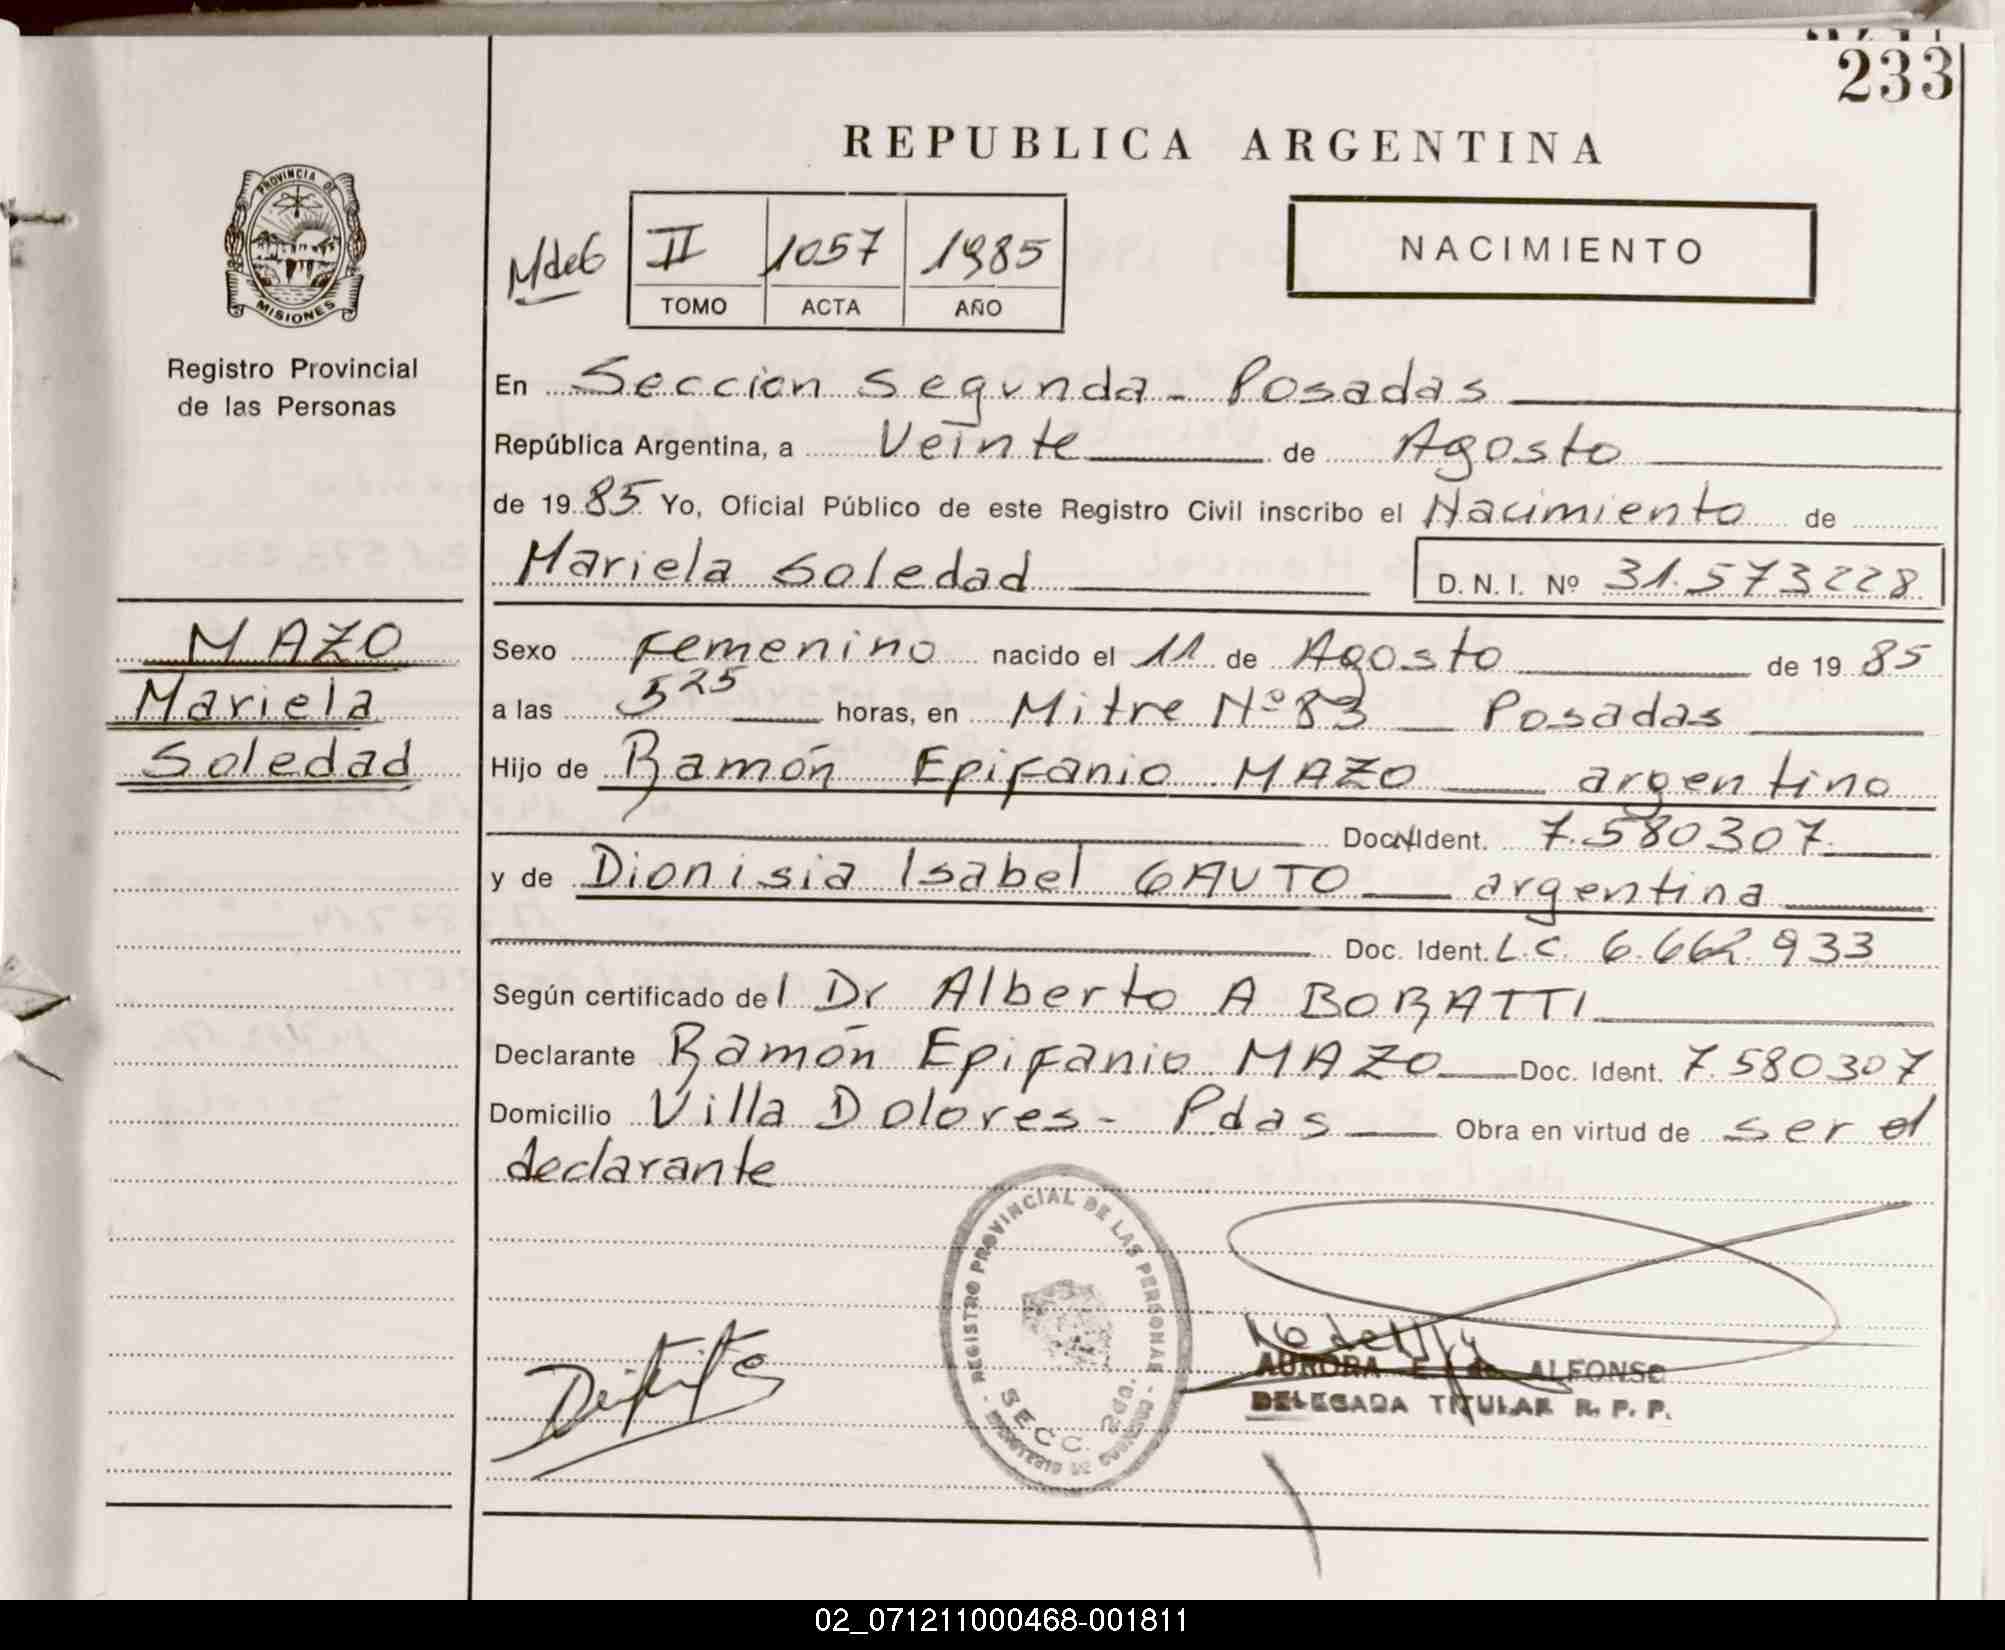 233
REPUBLICA ARGENTINA
PROVINCIA DE
MISIONES
Registro Provincial
de las Personas
MdeG
II 1057 1985
TOMO ACTA AÑO
NACIMIENTO
En Seccion Segunda - Posadas
República Argentina, a Veinte de Agosto
de 1985 Yo, Oficial Público de este Registro Civil inscribo el Nacimiento de
Mariela Soledad D. N. I. Nº 31.573228
MAZO
Mariela
Soledad
Sexo Femenino nacido el 11 de Agosto de 1985
a las 5 25 horas, en Mitre Nº 83 Posadas
Hijo de Ramón Epifanio MAZO argentino
Doc. Ident. 7.580307
y de Dionisia Isabel GAUTO argentina
Doc. Ident. L.C. 6.662.933
Según certificado del Dr Alberto A BORATTI
Declarante Ramón Epifanio MAZO Doc. Ident. 7.580307
Domicilio Villa Dolores - Pdas Obra en virtud de ser el
declarante
REGISTRO PROVINCIAL DE LAS PERSONAS
SECC. 2da.
AURORA E. de ALFONSO
DELEGADA TITULAR R. P. P.
02_071211000468-001811